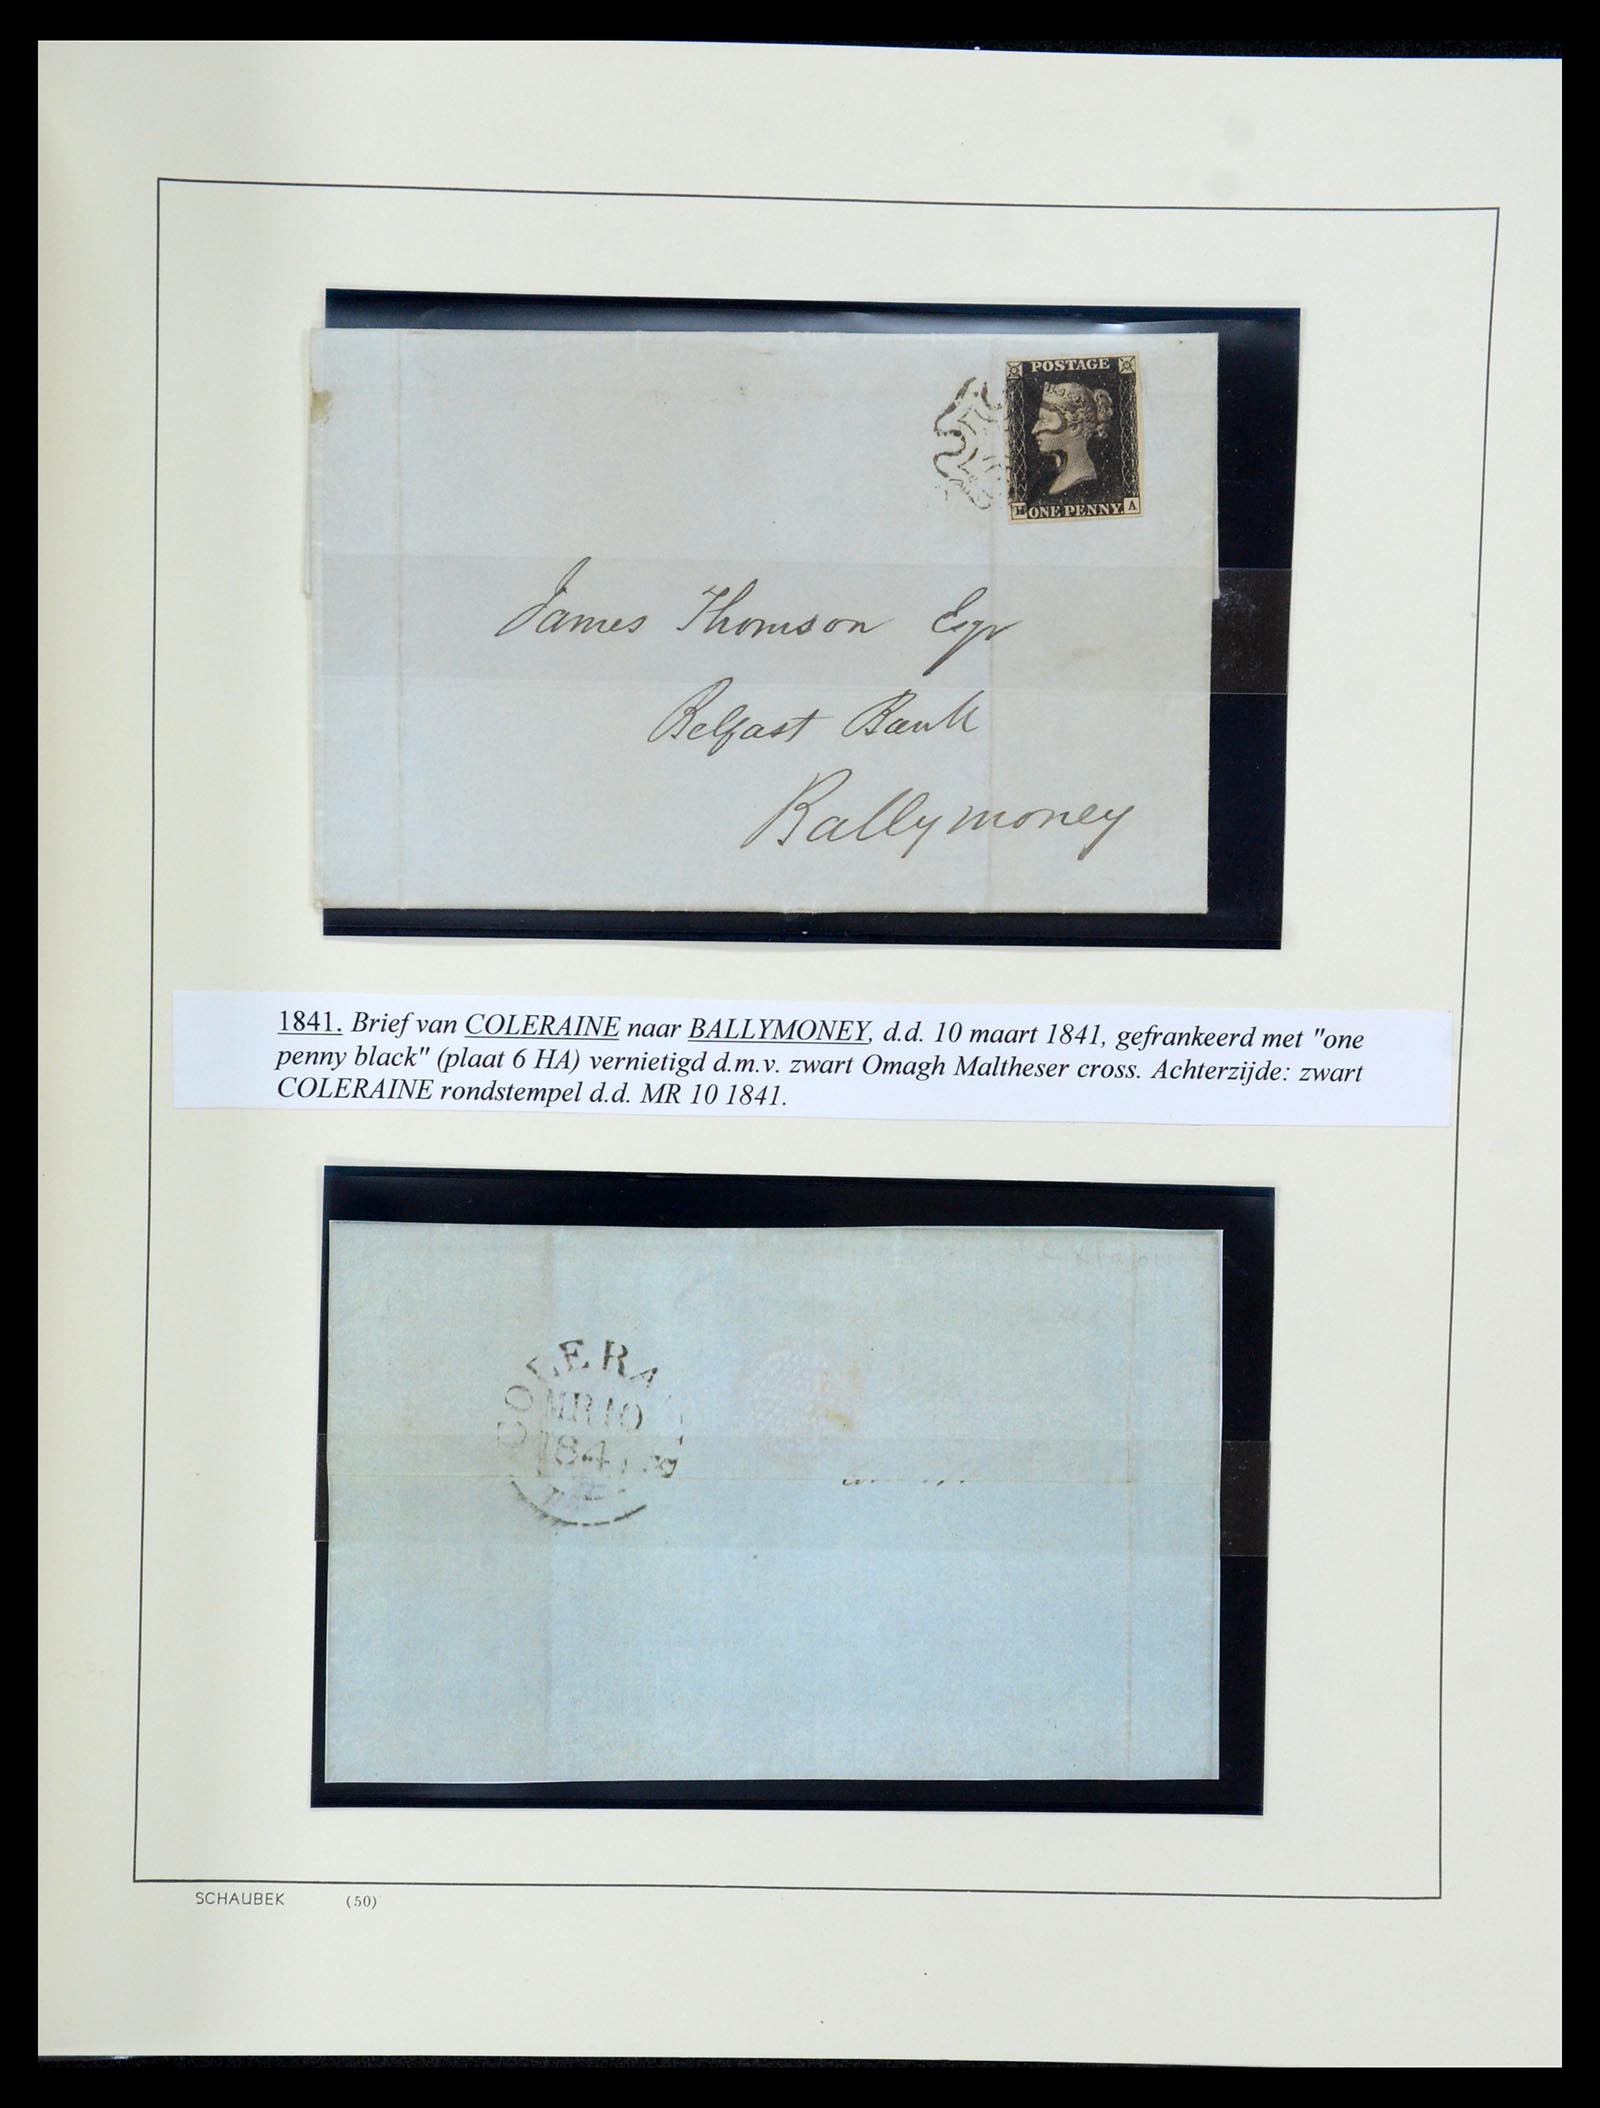 POSTAGE
H ONE PENNY. A
James Thomson Esqr
Belfast Bank
Ballymoney
1841. Brief van COLERAINE naar BALLYMONEY, d.d. 10 maart 1841, gefrankeerd met "one
penny black" (plaat 6 HA) vernietigd d.m.v. zwart Omagh Maltheser cross. Achterzijde: zwart
COLERAINE rondstempel d.d. MR 10 1841.
COLERA
MR 10
184
SCHAUBEK (50)